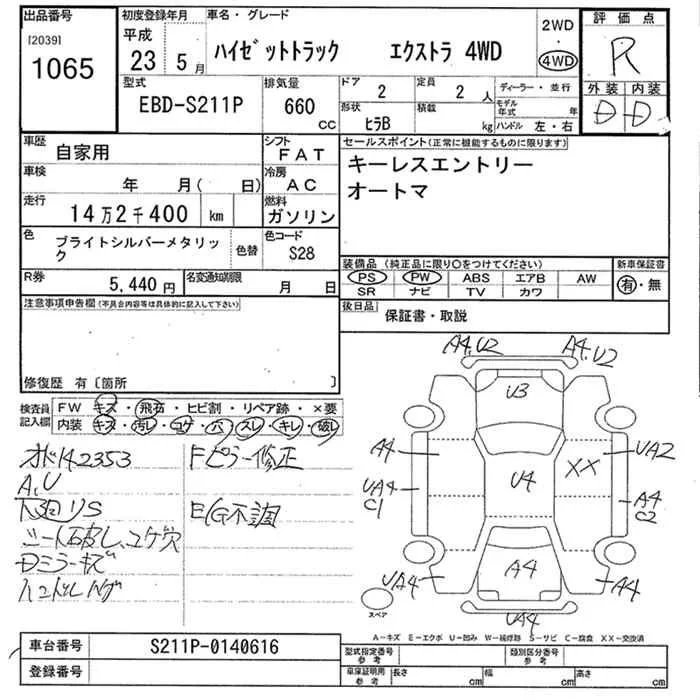 出品番号
[2039]
1065
初度登録年月
平成
23 5 月
車名・グレード
ハイゼットトラック エクストラ 4WD
2WD
4WD
評価点
R
外装 内装
D D
型式
EBD-S211P
排気量
660 CC
ドア
2
形状
ヒラB
定員
2 人
積載
kg
ディーラー・並行
モデル年式 年
ハンドル 左・右
車歴
自家用
シフト
FAT
車検
年 月( 日)
冷房
AC
走行
14万2千400 km
燃料
ガソリン
色
ブライトシルバーメタリック
色替
色コード
S28
R券
5,440 円
名変通知期限
月 日
セールスポイント(正常に機能するものに限ります)
キーレスエントリー
オートマ
装備品 (純正品に限り○をつけてください)
PS PW ABS エアB AW
SR ナビ TV カワ
新車保証書
有・無
後日品
保証書・取説
注意事項申告欄(不具合内容等は具体的に記入して下さい)
修復歴 有〔箇所 〕
検査員記入欄
FW キズ・飛石・ヒビ割・リペア跡・×要
内装 キズ・汚レ・コゲ・穴・スレ・キレ・破レ
オドメ42353
A,U
下廻りS
シート破レ、コゲ穴
Dミラーキズ
Fピラー修正
E/G不調
A4.U2
A4.U2
U3
A4
UA4
C1
U4
XX
UA2
A4
C2
A4
UA4
A4
UA4
スペア
A-キズ E-エクボ U-凹み W-補修跡 S-サビ C-腐食 XX-交換済
車台番号
S211P-0140616
登録番号
型式指定番号 参考
類別区分番号 参考
車庫証明用 参考
長さ cm
幅 cm
高さ cm